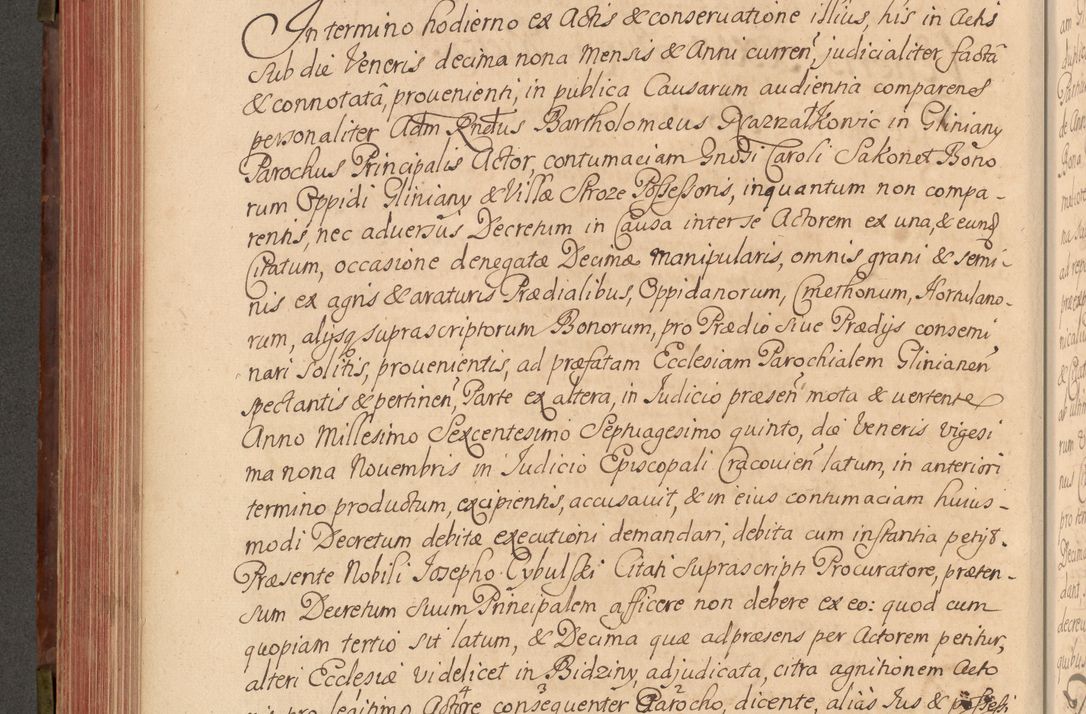 In termino hodierno ex Actis & conseruatione illius, his in Actis
sub die Veneris decima nona Mensis & Anni curren̄ judicialiter factā
& connotatā, prouenienti, in publica Causarum audientia comparens
personaliter Adm Rndus Bartholomæus Nazrzałkowic in Gliniany
Parochus Principalis Actor, contumaciam Gnosi Caroli Sakonet Bono
rum Oppidi Gliniany & Villæ Stroze Possessoris, inquantum non compa-
rentis, nec aduersus Decretum in Causa inter se Actorem ex una, & eund
Citatum, occasione denegatæ Decimæ manipularis, omnis grani & semi-
nis ex agris & araturis Prædialibus, Oppidanorum, Cmethonum, Hortulano-
rum, alijsq suprascriptorum Bonorum, pro Prædio siue Prædijs consemi
nari solitis, prouenientis, ad præfatam Ecclesiam Parochialem Glinianen̄
spectantis & pertinen̄, Parte ex altera, in Judicio præsen̄ mota & uertente
Anno Millesimo Sexcentesimo Septuagesimo quinto, die Veneris vigesi
ma nona Nouembris in Judicio Episcopali Cracouien̄ latum, in anteriori
termino productum, excipientis, accusauit, & in eius contumaciam huius-
modi Decretum debitæ executioni demandari, debita cum instantia petijt.
Præsente Nobili Josepho Cybulski Citati suprascripti Procuratore, præten-
sum Decretum suum Principalem afficere non debere ex eo: quod cum
quopiam tertio sit latum, & Decima quæ ad præsens per Actorem petitur,
alteri Ecclesiæ videlicet in Bidziny, adjudicata, citra agnitionem Acto
ris pro legitimo Actore 4 consequenter 3 Parocho 2, dicente, alias Jus &